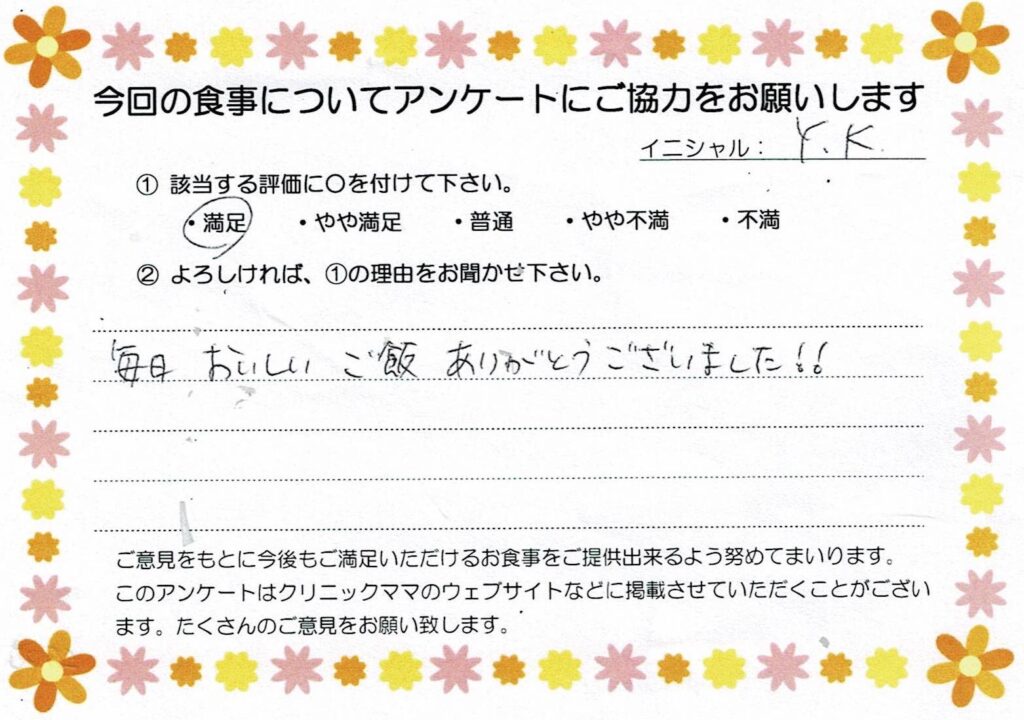 今回の食事についてアンケートにご協力をお願いします
イニシャル： Y.K.
① 該当する評価に〇を付けて下さい。
・満足 ・やや満足 ・普通 ・やや不満 ・不満
② よろしければ、①の理由をお聞かせ下さい。
毎日 おいしい ご飯 ありがとうございました!!
ご意見をもとに今後もご満足いただけるお食事をご提供出来るよう努めてまいります。
このアンケートはクリニックママのウェブサイトなどに掲載させていただくことがござい
ます。たくさんのご意見をお願い致します。